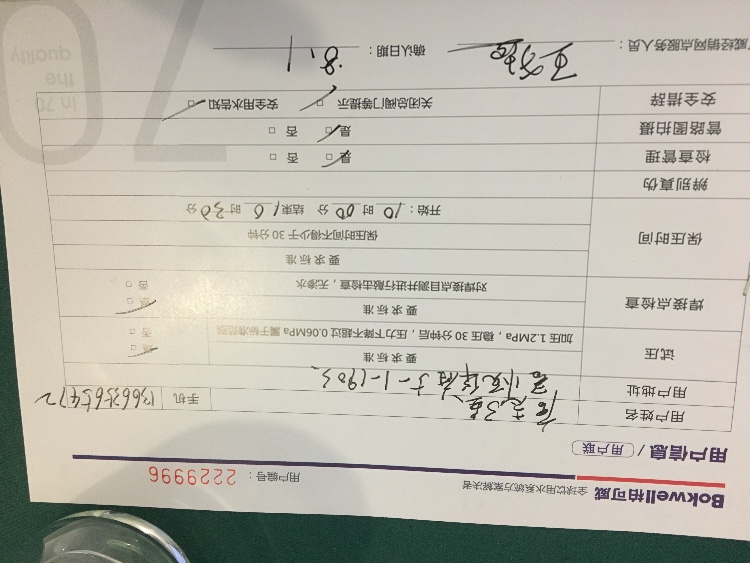 Bokwell柏可威 全球饮用水系统方案解决者
用户编号: 2229996
用户信息 / 用户联
用户姓名
手机 13663565472
用户地址
试压
要求标准
加压1.2MPa,稳压30分钟后,压力下降不超过0.06MPa属于标准范围
是 否
焊接点检查
要求标准
对焊接点目测并进行敲击检查,无渗水
是 否
保压时间
要求标准
保压时间不得少于30分钟
开始: 10 时 00 分 结束 10 时 30 分
辨别真伪
检查管理 是 □ 否 □
管路图拍摄 是 □ 否 □
安全措辞 关闭总阀门等提示 □ 安全用水告知 □
威经销网点服务人员: 确认日期: 8.1
70
in 70
the
quality